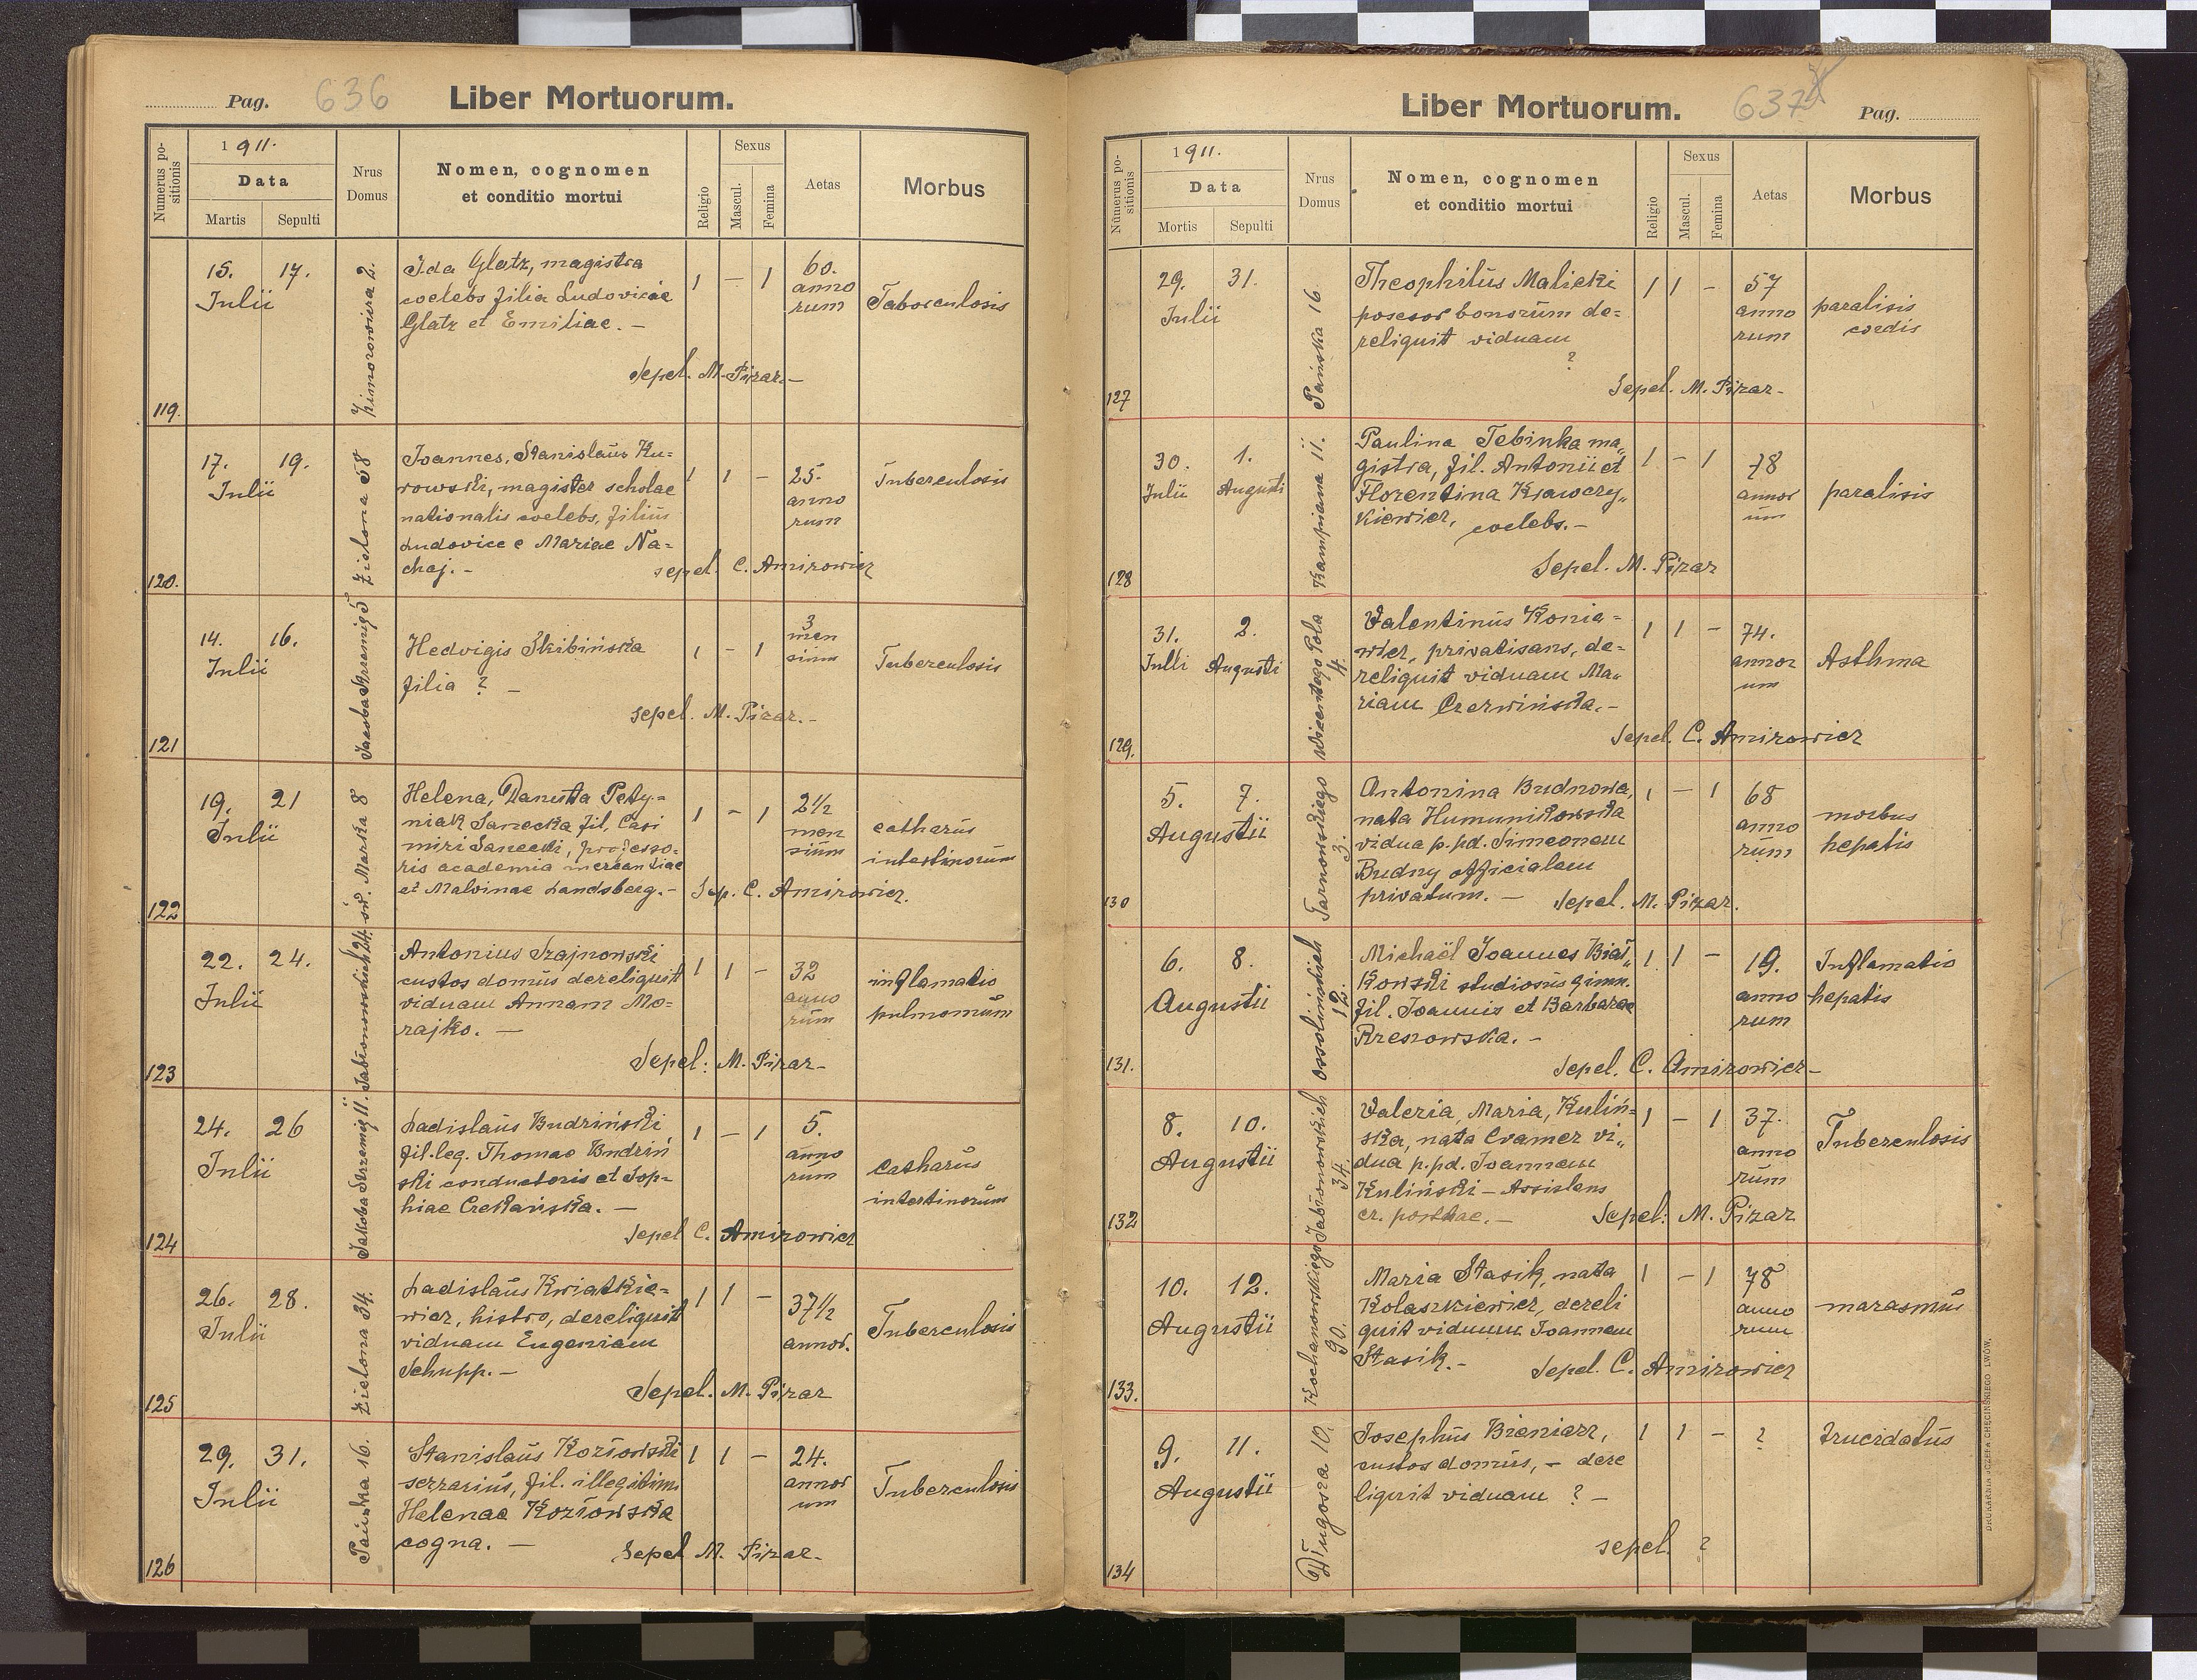 Pag. 636 Liber Mortuorum.
Numerus positionis
1911.
Data
Martis Sepulti
Nrus Domus
Nomen, cognomen
et conditio mortui
Religio
Sexus
Mascul. Femina
Aetas
Morbus
119.
15. 17.
Julii
Zimorowicza 2.
Ida Glatz, magistra
coelebs filia Ludovicae
Glatz et Emiliae. —
Sepel. M. Pizar. —
1 — 1
60.
anno
rum
Taborculosis
120.
17. 19.
Julii
Zielona 58
Joannes, Stanislaus Ku=
rowski, magister scholae
nationalis coelebs, filius
Ludovice e Mariae Na=
chaj. —
sepel. C. Amirowicz
1 1 —
25.
anno
rum
Tuberculosis
121
14. 16.
Julii
Jacoba Strzemię 5
Hedvigis Skibińska
filia ? —
sepel. M. Pizar. —
1 — 1
3
men
sium
Tuberculosis
122
19. 21
Julii
św. Marka 8
Helena, Danuta Pety=
niak Sanecka fil. Casi
miri Sanecki, professo=
ris academia mercantiae
et Malvinae Landsberg. —
Sep. C. Amirowicz.
1 — 1
2 1/2
men
sium
catharus
intestinorum
123
22. 24.
Julii
Jabłonowskich 24.
Antonius Szajnowski
custos domus dereliquit
viduam Annam Mo=
rajko. —
Sepel: M. Pizar —
1 1 —
32
anno
rum
inflamatio
pulmonum
124
24. 26
Julii
Jakoba Strzemię 11.
Ladislaus Budziński
fil. leg. Thomae Budziń
ski conductoris et Sop=
hiae Czekańska. —
Sepel C. Amirowicz
1 — 1
5.
anno
rum
Catharus
intestinorum
125
26. 28.
Julii
Zielona 34.
Ladislaus Kwiatkie=
wicz, histro, dereliquit
viduam Eugeniam
Schupp. —
Sepel. M. Pizar
1 1 —
37 1/2
annor.
Tuberculosis
126
29. 31.
Julii
Pańska 16.
Stanislaus Kozłowski
serrarius, fil. illegitimi
Helenae Kozłowska
cogna. —
Sepel M. Pizar —
1 1 —
24.
annor
um
Tuberculosis
Liber Mortuorum. 637 Pag.
Numerus positionis
1911.
Data
Mortis Sepulti
Nrus Domus
Nomen, cognomen
et conditio mortui
Religio
Sexus
Mascul. Femina
Aetas
Morbus
127
29. 31.
Julii
Pańska 16
Theophilus Malicki
posesor bonorum de=
reliquit viduam
?
Sepel. M. Pizar —
1 1 —
57
anno
rum
paralisis
cordis
128
30. 1.
Julii Augusti
Kampiana 11.
Paulina Tebinka ma„
gistra, fil. Antonii et
Florentina Krawczy„
kiewicz, coelebs. —
Sepel. M. Pizar
1 — 1
78
annor
um
paralisis
129.
31. 2.
Julii Augusti
Wicentego Pola 4.
Valentinus Konia=
wicz, privatisans, de=
reliquit viduam Ma„
riam Czerwińska. —
Sepel. C. Amirowicz
1 1 —
74.
annor
um
Asthma
130
5. 7.
Augustii
Tarnowskiego 3.
Antonina Budnowa,
nata Humunikowska
vidua p. pd. Simeonem
Budny officialem
privatum. —
Sepel. M. Pizar.
1 — 1
68
anno
rum
morbus
hepatis
131.
6. 8.
Augustii
Ossolińskich 12.
Michaöl Joannes Biał„
kowski studiosus gimn.
fil. Joannis et Barbarae
Rzesowska. —
Sepel. C. Amirowicz —
1 1 —
19.
anno
rum
Inflamatio
hepatis
132
8. 10.
Augustii
Jabłonowskich 34.
Valeria, Maria, Kuliń=
ska, nata Cramer vi„
dua p. pd. Joannem
Kuliński — Assistens
cr. posthae. —
Sepel: M. Pizar
1 — 1
37.
anno
rum
Tuberculosis
133.
10. 12.
Augustii
Kochanowskiego 90.
Maria Stasik, nata
Kolaszkiewicz, dereli
quit viduum Joannem
Stasik. —
Sepel. C. Amirowicz
1 — 1
78
anno
rum
marasmus
134
9. 11.
Augustii
Długosza 10.
Josephus Bieniarz,
custos domus, — dere
liquit viduam ? —
sepel. ?
1 1 — ?
trucidatus
DRUKARNIA JÓZEFA CHĘCIŃSKIEGO LWÓW.